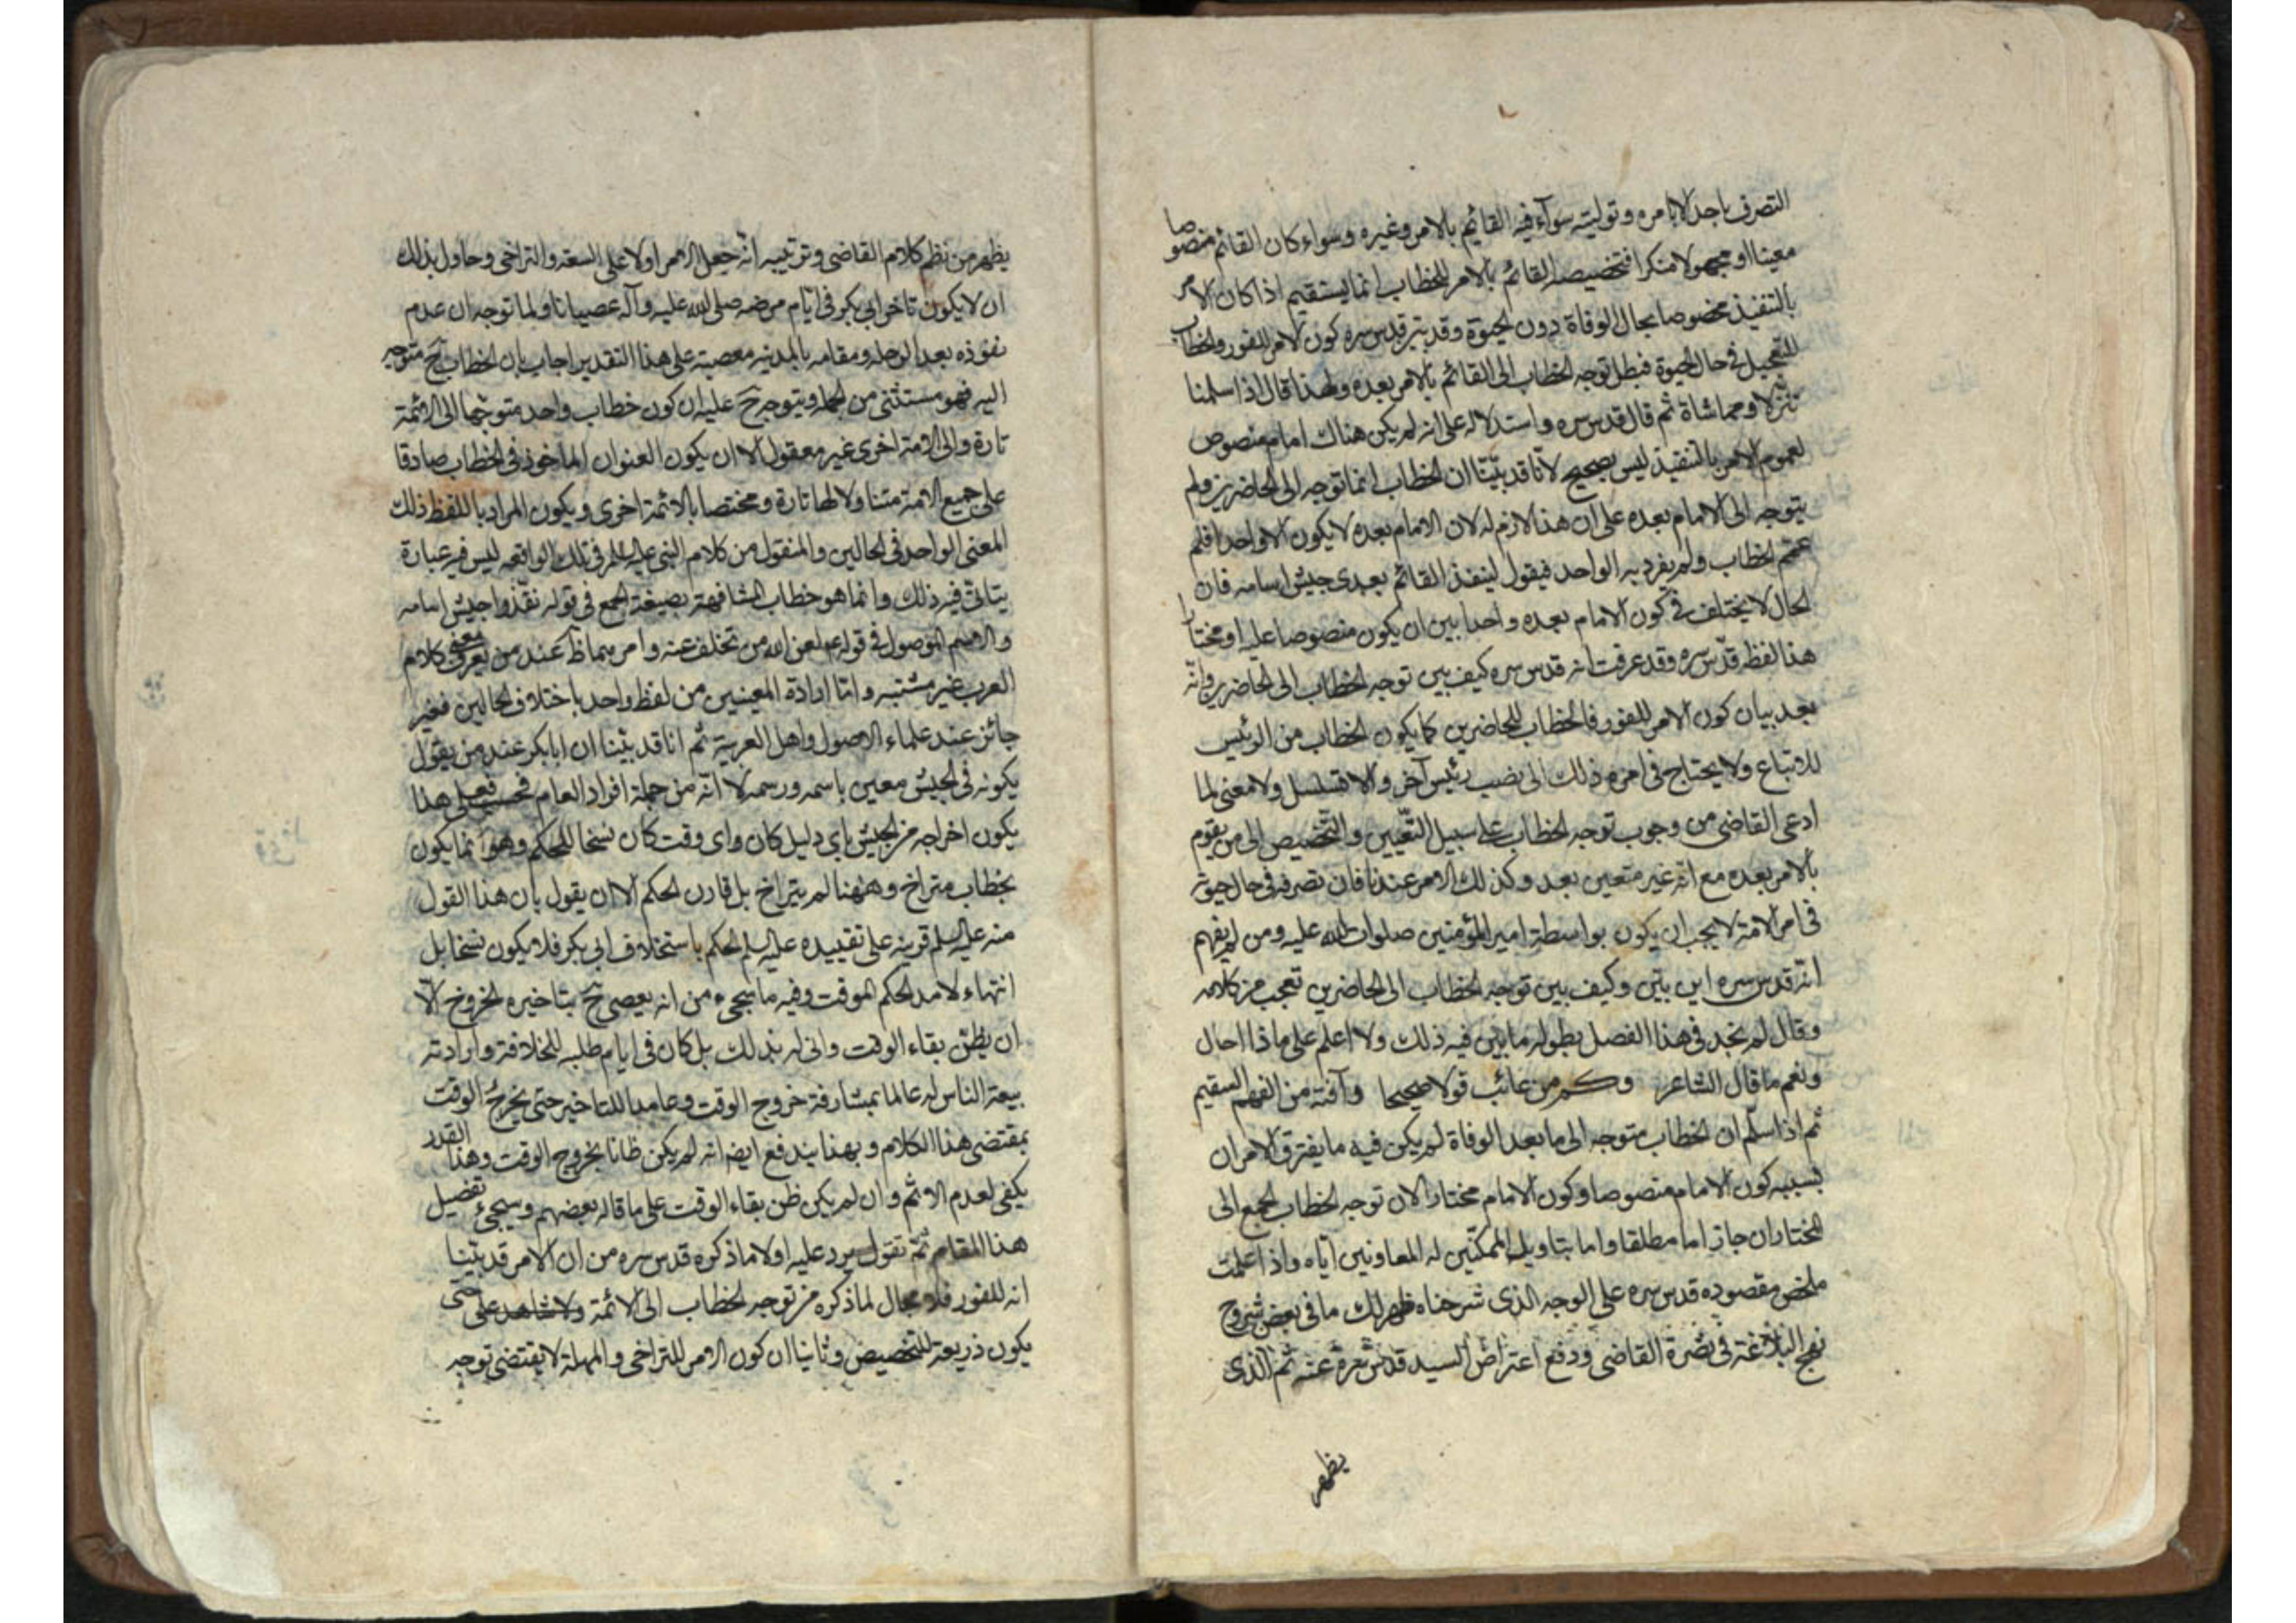 التصرف باجد لا بامره وتوليته سوآء فيه القايم بالامر وغيره وسواء كان القائم منصوصا
معينا او مجهولا منكرا فتخصيصه القائم بالامر للخطاب انما يستقيم اذا كان الامر
بالتنفيذ مخصوصا بحال الوفاة دون الحيوة وقد بيّن قدس سره كون الامر للفور والخطاب
للتعجيل في حال الحيوة فبطل توجه الخطاب الى القائم بالامر بعده ولهذا قال اذا سلمنا
تنزلا ومماشاة ثم قال قدس سره واستدلاله على انه لم يكن هناك امام منصوص
لعموم الامر بالتنفيذ ليس بصحيح لانا قد بيّنا ان الخطاب انما توجه الى الحاضرين ولم
يتوجه الى الامام بعده على ان هذا لازم له لان الامام بعده لا يكون الا واحدا فلم
عمّم الخطاب ولم يفرد به الواحد فيقول لينفذ القائم بعدى جيش اسامه فان
الحال لا يختلف في كون الامام بعده واحدا بين ان يكون منصوصا عليه او مختارا
هذا لفظه قدّس سره وقد عرفت انه قدس سره كيف بين توجه الخطاب الى الحاضرين وانّه
بعد بيان كون الامر للفور فالخطاب للحاضرين كما يكون الخطاب من الرئيس
للاتباع ولا يحتاج فى امره ذلك الى نصب رئيس آخر والا تسلسل ولا معنى لما
ادعى القاضى من وجوب توجه الخطاب على سبيل التعيين والتخصيص الى من يقوم
بالامر بعده مع انّه غير متعين بعد وكذلك الامر عندنا فان تصرفه فى حال حيوته
فى امر الامة لا يجب ان يكون بواسطة امير المؤمنين صلوات الله عليه ومن لم يفهم
انّه قدس سره اين بيّن وكيف بين توجه الخطاب الى الحاضرين تعجب من كلامه
وقال لم نجد فى هذا الفصل بطوله ما بيّن فيه ذلك ولا اعلم على ماذا احال
ونعم ما قال الشاعر وكم من عائب قولا صحيحا وآفته من الفهم السقيم
ثم اذا سلّم ان الخطاب متوجه الى ما بعد الوفاة لم يكن فيه ما يفترق الامران
بسببه كون الامام منصوصا وكون الامام مختارا لان توجه الخطاب الجمع الى
المختار ان جاز اما مطلقا واما بتاويل الممكّنين له المعاونين اياه واذا علمت
ملخص مقصوده قدس سره على الوجه الذى شرحناه ظهر لك ما فى بعض شروح
نهج البلاغة فى نصرة القاضى ودفع اعتراض السيد قدس سره عنه ثم الذى
يظهر
يظهر من نظم كلام القاضى وترتيبه انّه جعل الامر اولا على السعة والتراخى وحاول بذلك
ان لا يكون تاخر ابى بكر فى ايّام مرضه صلى الله عليه وآله عصيانا ولما توجه ان عدم
نفوذه بعد الرحله ومقامه بالمدينه معصية على هذا التقدير اجاب بان الخطاب ح متوجه
اليه فهو مستثنى من الجملة ويتوجه ح عليه ان كون خطاب واحد متوجها الى الائمة
تارة والى الامة اخرى غير معقول الا ان يكون العنوان الماخوذ فى الخطاب صادقا
على جميع الامة متناولا لها تارة ومختصا بالائمة اخرى ويكون المراد باللفظ ذلك
المعنى الواحد فى الحالين والمنقول من كلام النبى عليه السلم فى تلك الواقعه ليس فيه عبارة
يتاتى فيه ذلك وانما هو خطاب المشافهة بصيغة الجمع فى قوله نفّذوا جيش اسامه
والاسم الموصول فى قوله لعن الله من تخلف عنه وامرهما ظ عند من يعرف معنى كلام
العرب غير مشتبه وامّا ارادة المعينين من لفظ واحد باختلاف الحالين فغير
جائز عند علماء الاصول واهل العربية ثم انا قد بيّنا ان ابابكر عند من يقول
بكونه فى الجيش معين باسمه ورسمه لا انّه من جملة افراد العام فحسب فعلى هذا
يكون اخراجه من الجيش باى دليل كان واى وقت كان نسخا للحكم وهو انما يكون
بخطاب متراخ وههنا لم يتراخ بل قارن الحكم الا ان يقول بان هذا القول
منه عليه السلم قرينة على تقييده عليه السلم الحكم باستخلاف ابى بكر فلا يكون نسخا بل
انتهاء لامد الحكم الموقت وفيه ما سيجىء من انه يعصى ح بتاخيره الخروج الّا
ان يظنّ بقاء الوقت وانى له بذلك بل كان فى ايام طلبه للخلافة وارادته
بيعة الناس له عالما بمشارفة خروج الوقت وعامدا للتاخير حتى يخرج الوقت
بمقتضى هذا الكلام وبهذا يندفع ايضا انه لم يكن ظانا بخروج الوقت وهذا القدر
يكفى لعدم الاثم وان لم يكن ظن بقاء الوقت على ما قاله بعضهم وسيجىء تفصيل
هذا المقام ثمّ نقول يرد عليه اولا ما ذكره قدس سره من ان الامر قد بيّنا
انه للفور فلا مجال لما ذكره من توجه الخطاب الى الائمة ولا شاهد على حتى
يكون ذريعة للتخصيص وثانيا ان كون الامر للتراخى والمهلة لا يقتضى توجه